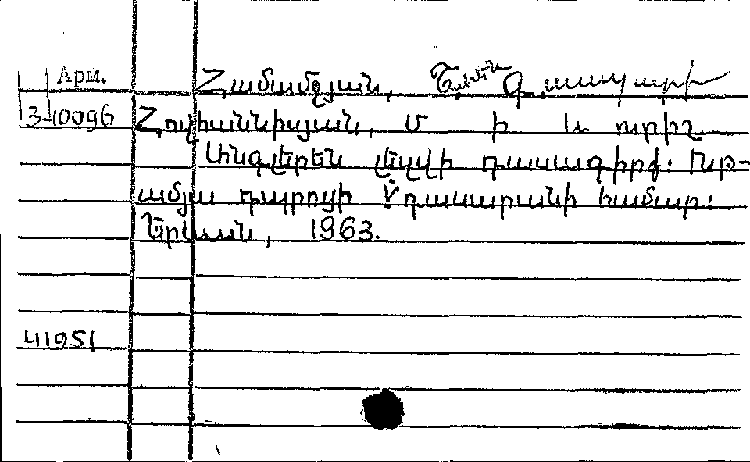 Арм.
Համամջյան,
3-10096 Հովհաննիսյան, Մ և ուրիշ
Անգլերեն լեզվի դասագիրք: Ութ-
ամյա դպրոցի V դասարանի համար:
Երևան, 1963.
41951